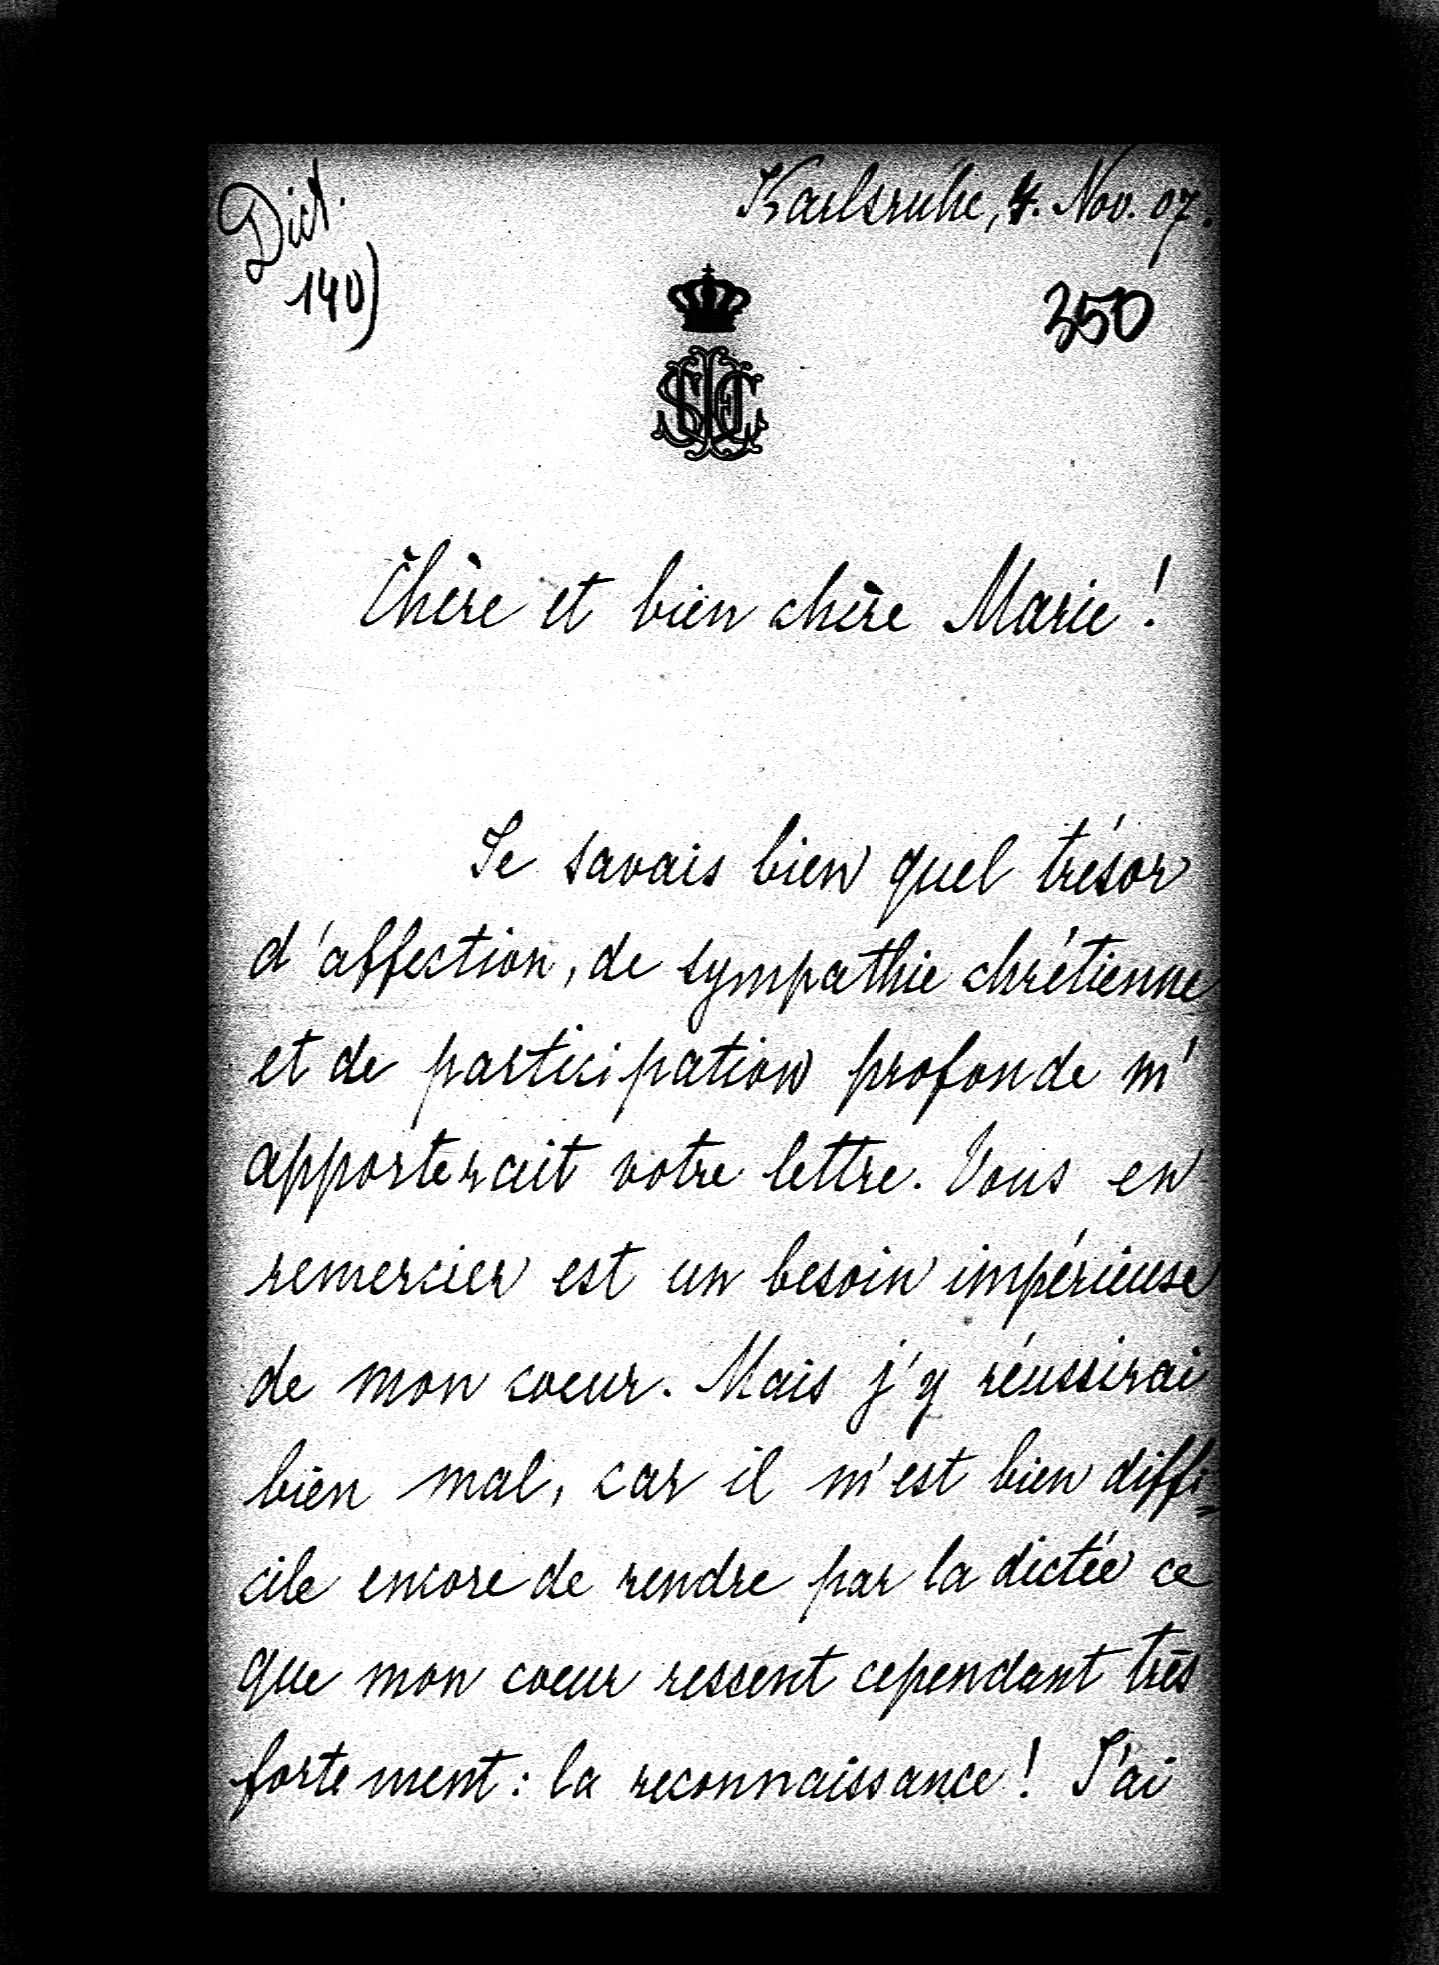 Dict.
140)
Karlsruhe, 4. Nov. 07.
350
Chère et bien chère Marie!
Je savais bien quel trésor
d'affection, de sympathie chrétienne
et de participation profonde m'
apporterait votre lettre. Vous en
remercier est un besoin impérieuse
de mon coeur. Mais j'y réussirai
bien mal, car il m'est bien diffi=
cile encore de rendre par la dictée ce
que mon coeur ressent cependant très
fortement: la reconnaissance! J'ai